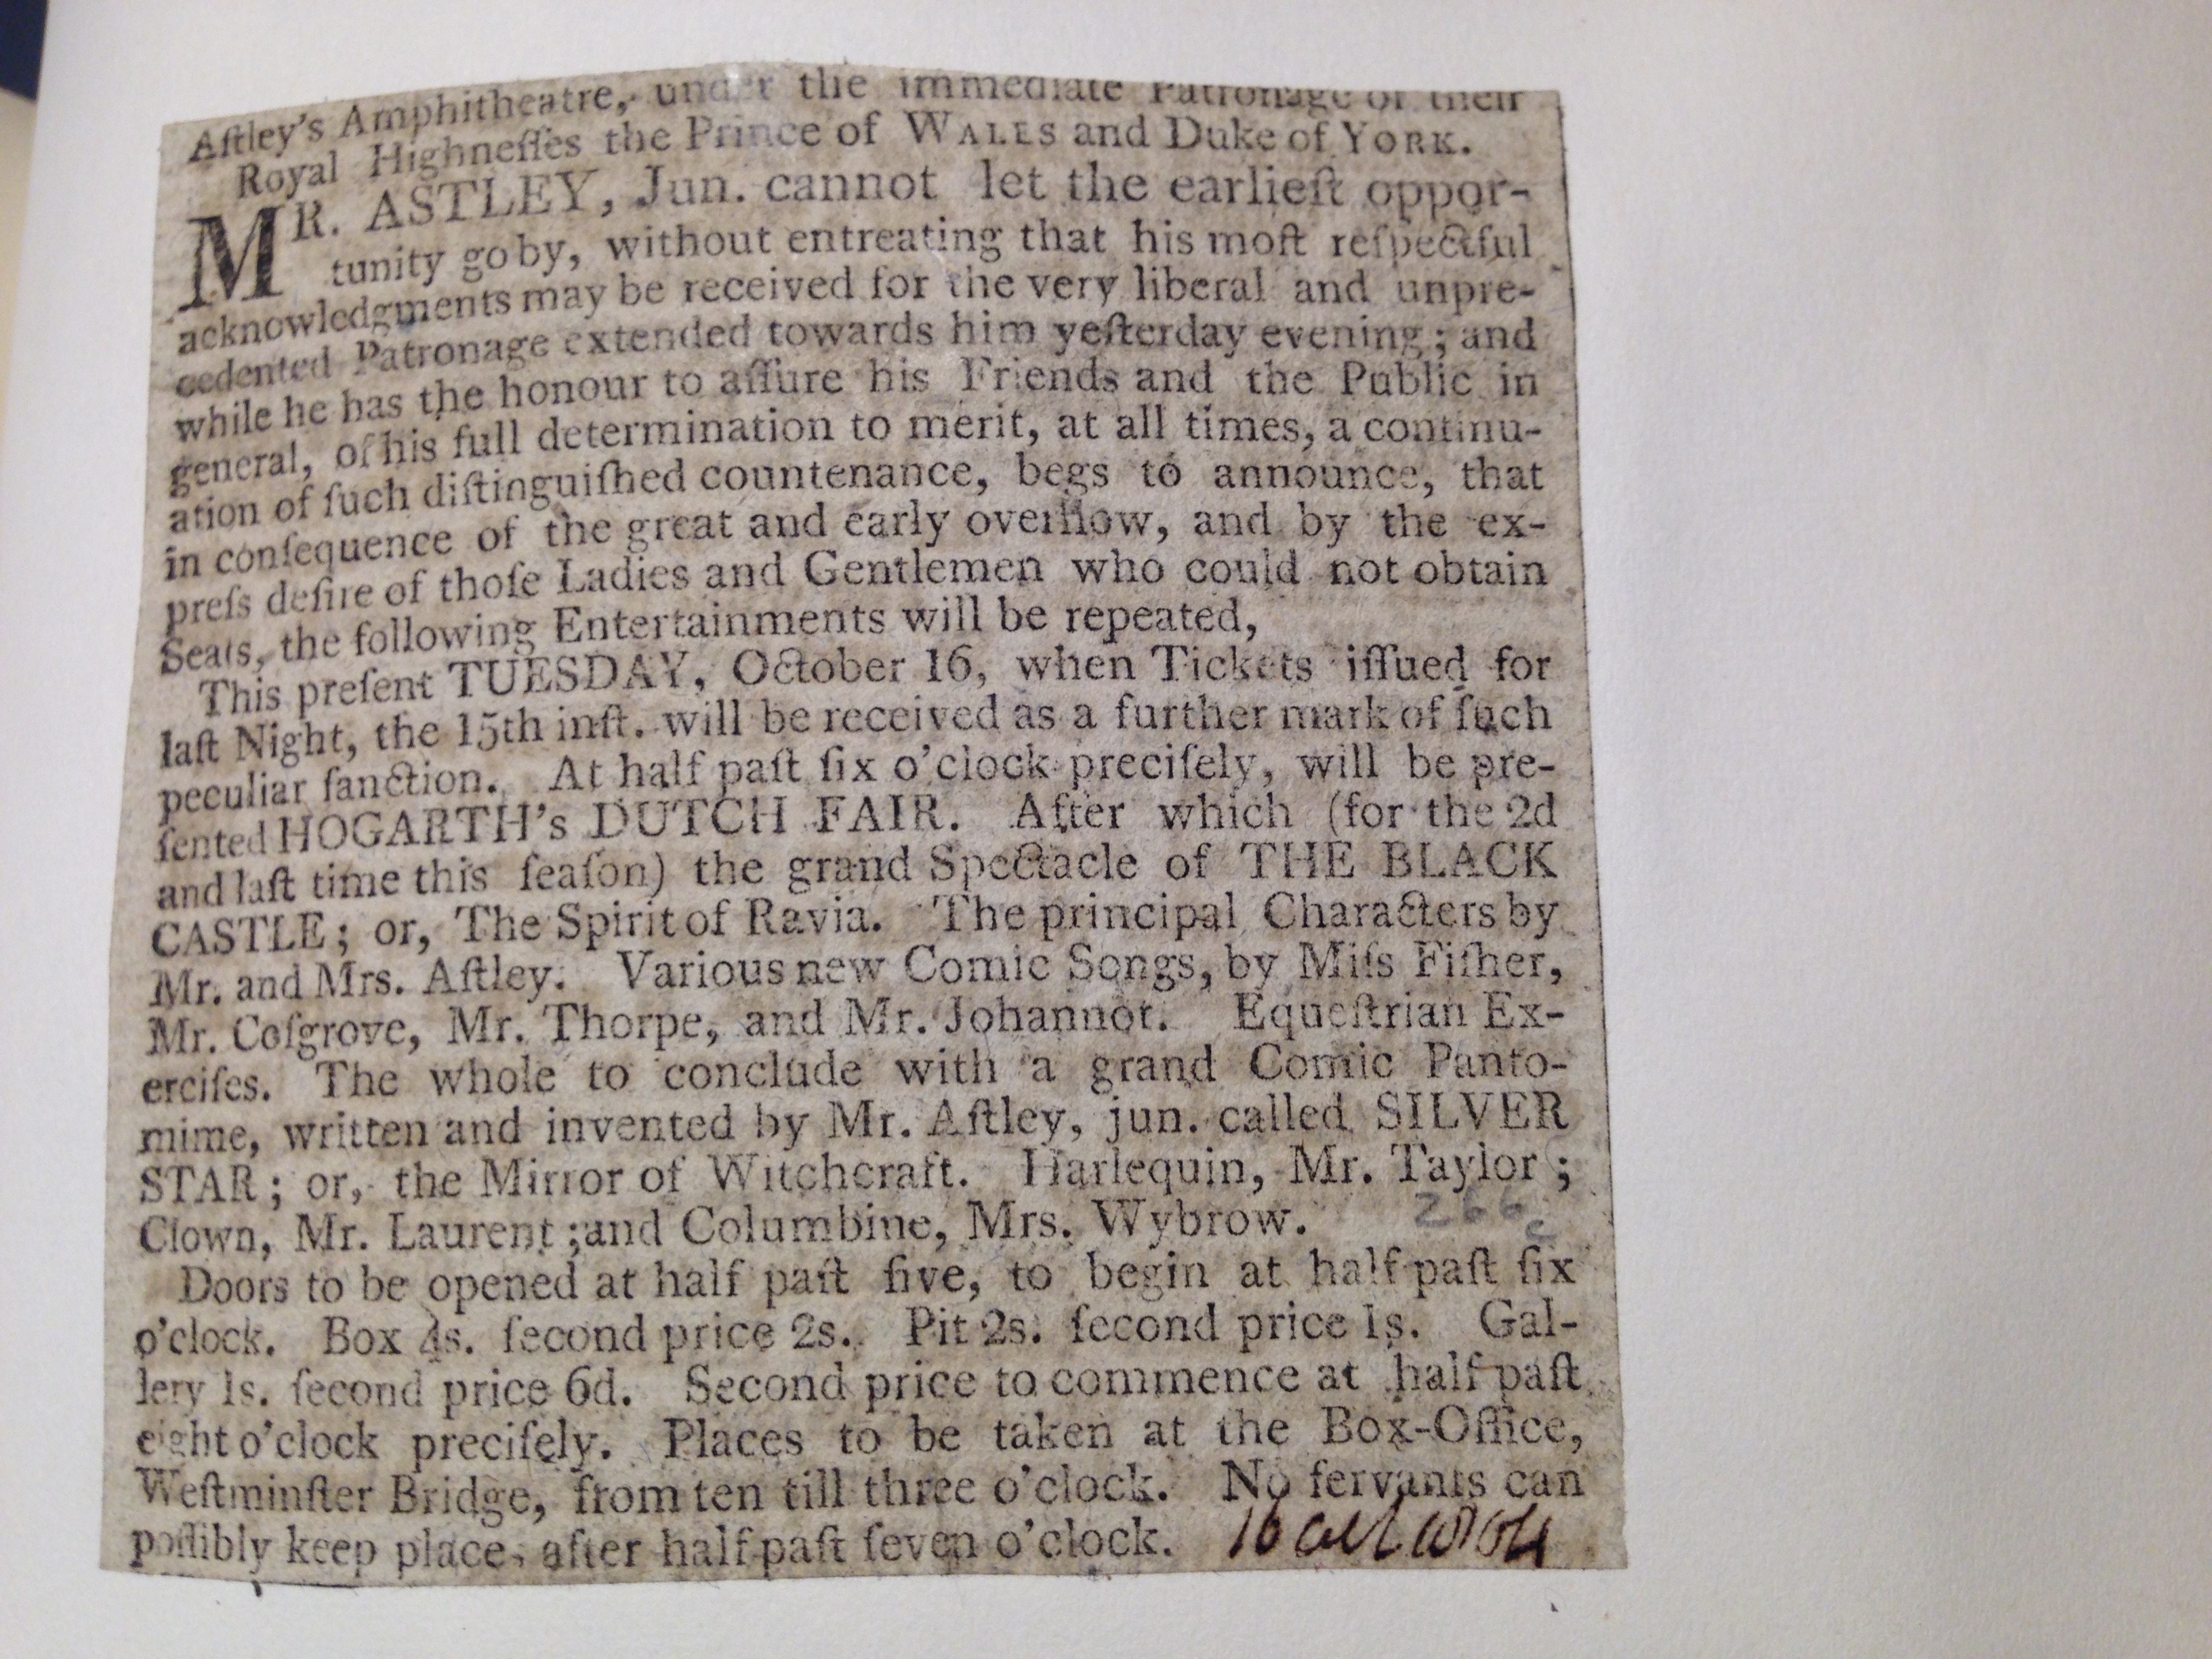 Aſtley's Amphitheatre, under the immediate Patronage of their
Royal Highneſſes the Prince of WALES and Duke of YORK.
MR. ASTLEY, Jun. cannot let the earlieſt oppor-
tunity go by, without entreating that his moſt reſpectful
acknowledgments may be received for the very liberal and unpre-
cedented Patronage extended towards him yeſterday evening; and
while he has the honour to aſſure his Friends and the Public in
general, of his full determination to merit, at all times, a continu-
ation of ſuch diſtinguiſhed countenance, begs to announce, that
in conſequence of the great and early overflow, and by the ex-
preſs deſire of thoſe Ladies and Gentlemen who could not obtain
Seats, the following Entertainments will be repeated,
This preſent TUESDAY, October 16, when Tickets iſſued for
laſt Night, the 15th inſt. will be received as a further mark of ſuch
peculiar ſanction. At half paſt ſix o'clock preciſely, will be pre-
ſented HOGARTH's DUTCH FAIR. After which (for the 2d
and laſt time this ſeaſon) the grand Spectacle of THE BLACK
CASTLE; or, The Spirit of Ravia. The principal Characters by
Mr. and Mrs. Aſtley. Various new Comic Songs, by Miſs Fiſher,
Mr. Coſgrove, Mr. Thorpe, and Mr. Johannot. Equeſtrian Ex-
erciſes. The whole to conclude with a grand Comic Panto-
mime, written and invented by Mr. Aſtley, jun. called SILVER
STAR; or, the Mirror of Witchcraft. Harlequin, Mr. Taylor;
Clown, Mr. Laurent; and Columbine, Mrs. Wybrow.
266c
Doors to be opened at half paſt five, to begin at half paſt ſix
o'clock. Box 4s. ſecond price 2s. Pit 2s. ſecond price 1s. Gal-
lery 1s. ſecond price 6d. Second price to commence at half paſt
eight o'clock preciſely. Places to be taken at the Box-Office,
Weſtminſter Bridge, from ten till three o'clock. No ſervants can
poſſibly keep places after half paſt ſeven o'clock. 16